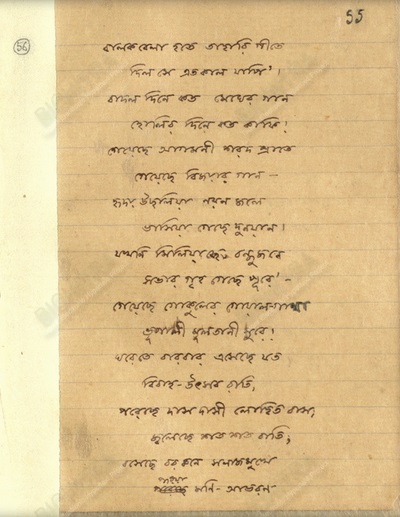 55
56
বালকবেলা হতে তাহারি গীতে
দিল সে এতকাল যাপি'।
বাদল দিনে কত মেঘের গান
হোলির দিনে কত কাফি!
গেয়েছে আগমনী শরত প্রাতে
গেয়েছে বিজয়ার গান –
হৃদয় উছলিয়া নয়ন জলে
ভাসিয়া গেছে দুনয়ান।
যখনি মিলিয়াছে বন্ধুজনে
সভার গৃহ গেছে পূরে' –
গেয়েছে গোকুলের গোয়ালগাথা
ভূপালী মুলতানী সুরে!
ঘরেতে বারবার এসেছে কত
বিবাহ-উৎসব রাতি,
পরেছে দাস দাসী লোহিত বাস,
জ্বলেছে শত শত বাতি,
বসেছে সলাজমুখে
পরিয়া
মণি-আভরণ